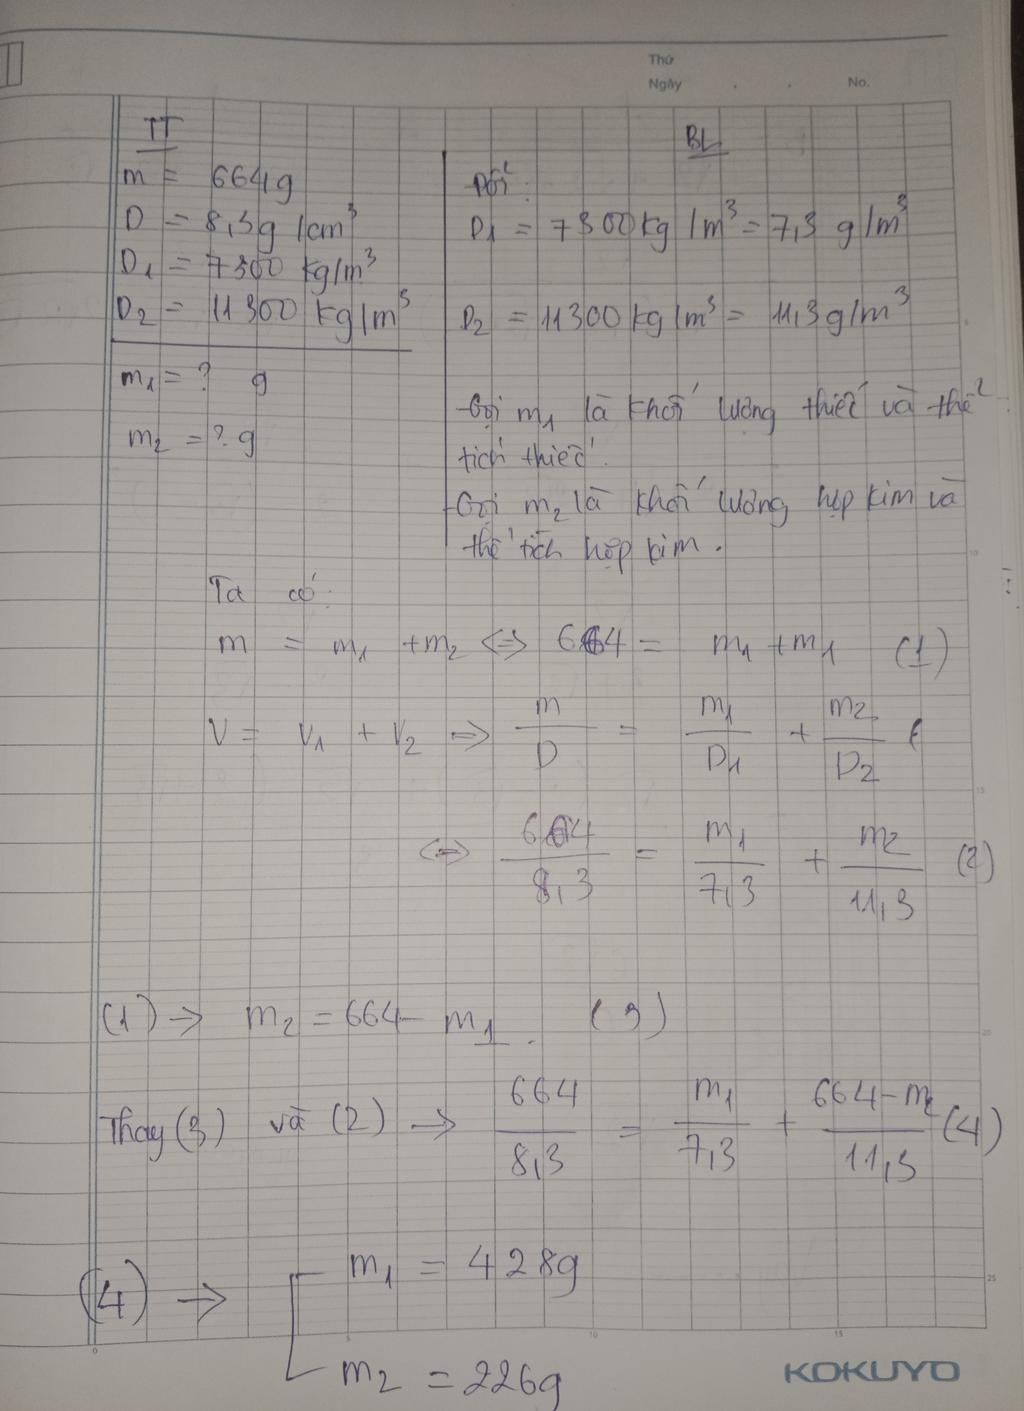 Thứ
Ngày . . No.
TT
m = 664g
D = 8,3g /cm³
D1 = 7300 kg/m³
D2 = 11300 kg/m³
m1 = ? g
m2 = ? g
BL
Đổi:
D1 = 7300kg /m³ = 7,3 g/m³
D2 = 11300kg/m³ = 11,3g/m³
-Gọi m1 là khối lượng thiếc và thể
tích thiếc.
-Gọi m2 là khối lượng hợp kim và
thể tích hợp kim.
Ta có:
m = m1 + m2 <=> 664 = m1 + m1 (1)
V = V1 + V2 => m/D = m1/D1 + m2/D2
<=> 664/8,3 = m1/7,3 + m2/11,3 (2)
(1) -> m2 = 664 - m1. (3)
Thay (3) và (2) -> 664/8,3 = m1/7,3 + 664-m1/11,3 (4)
(4) -> m1 = 428g
m2 = 226g
5 10 15 20 25
KOKUYO